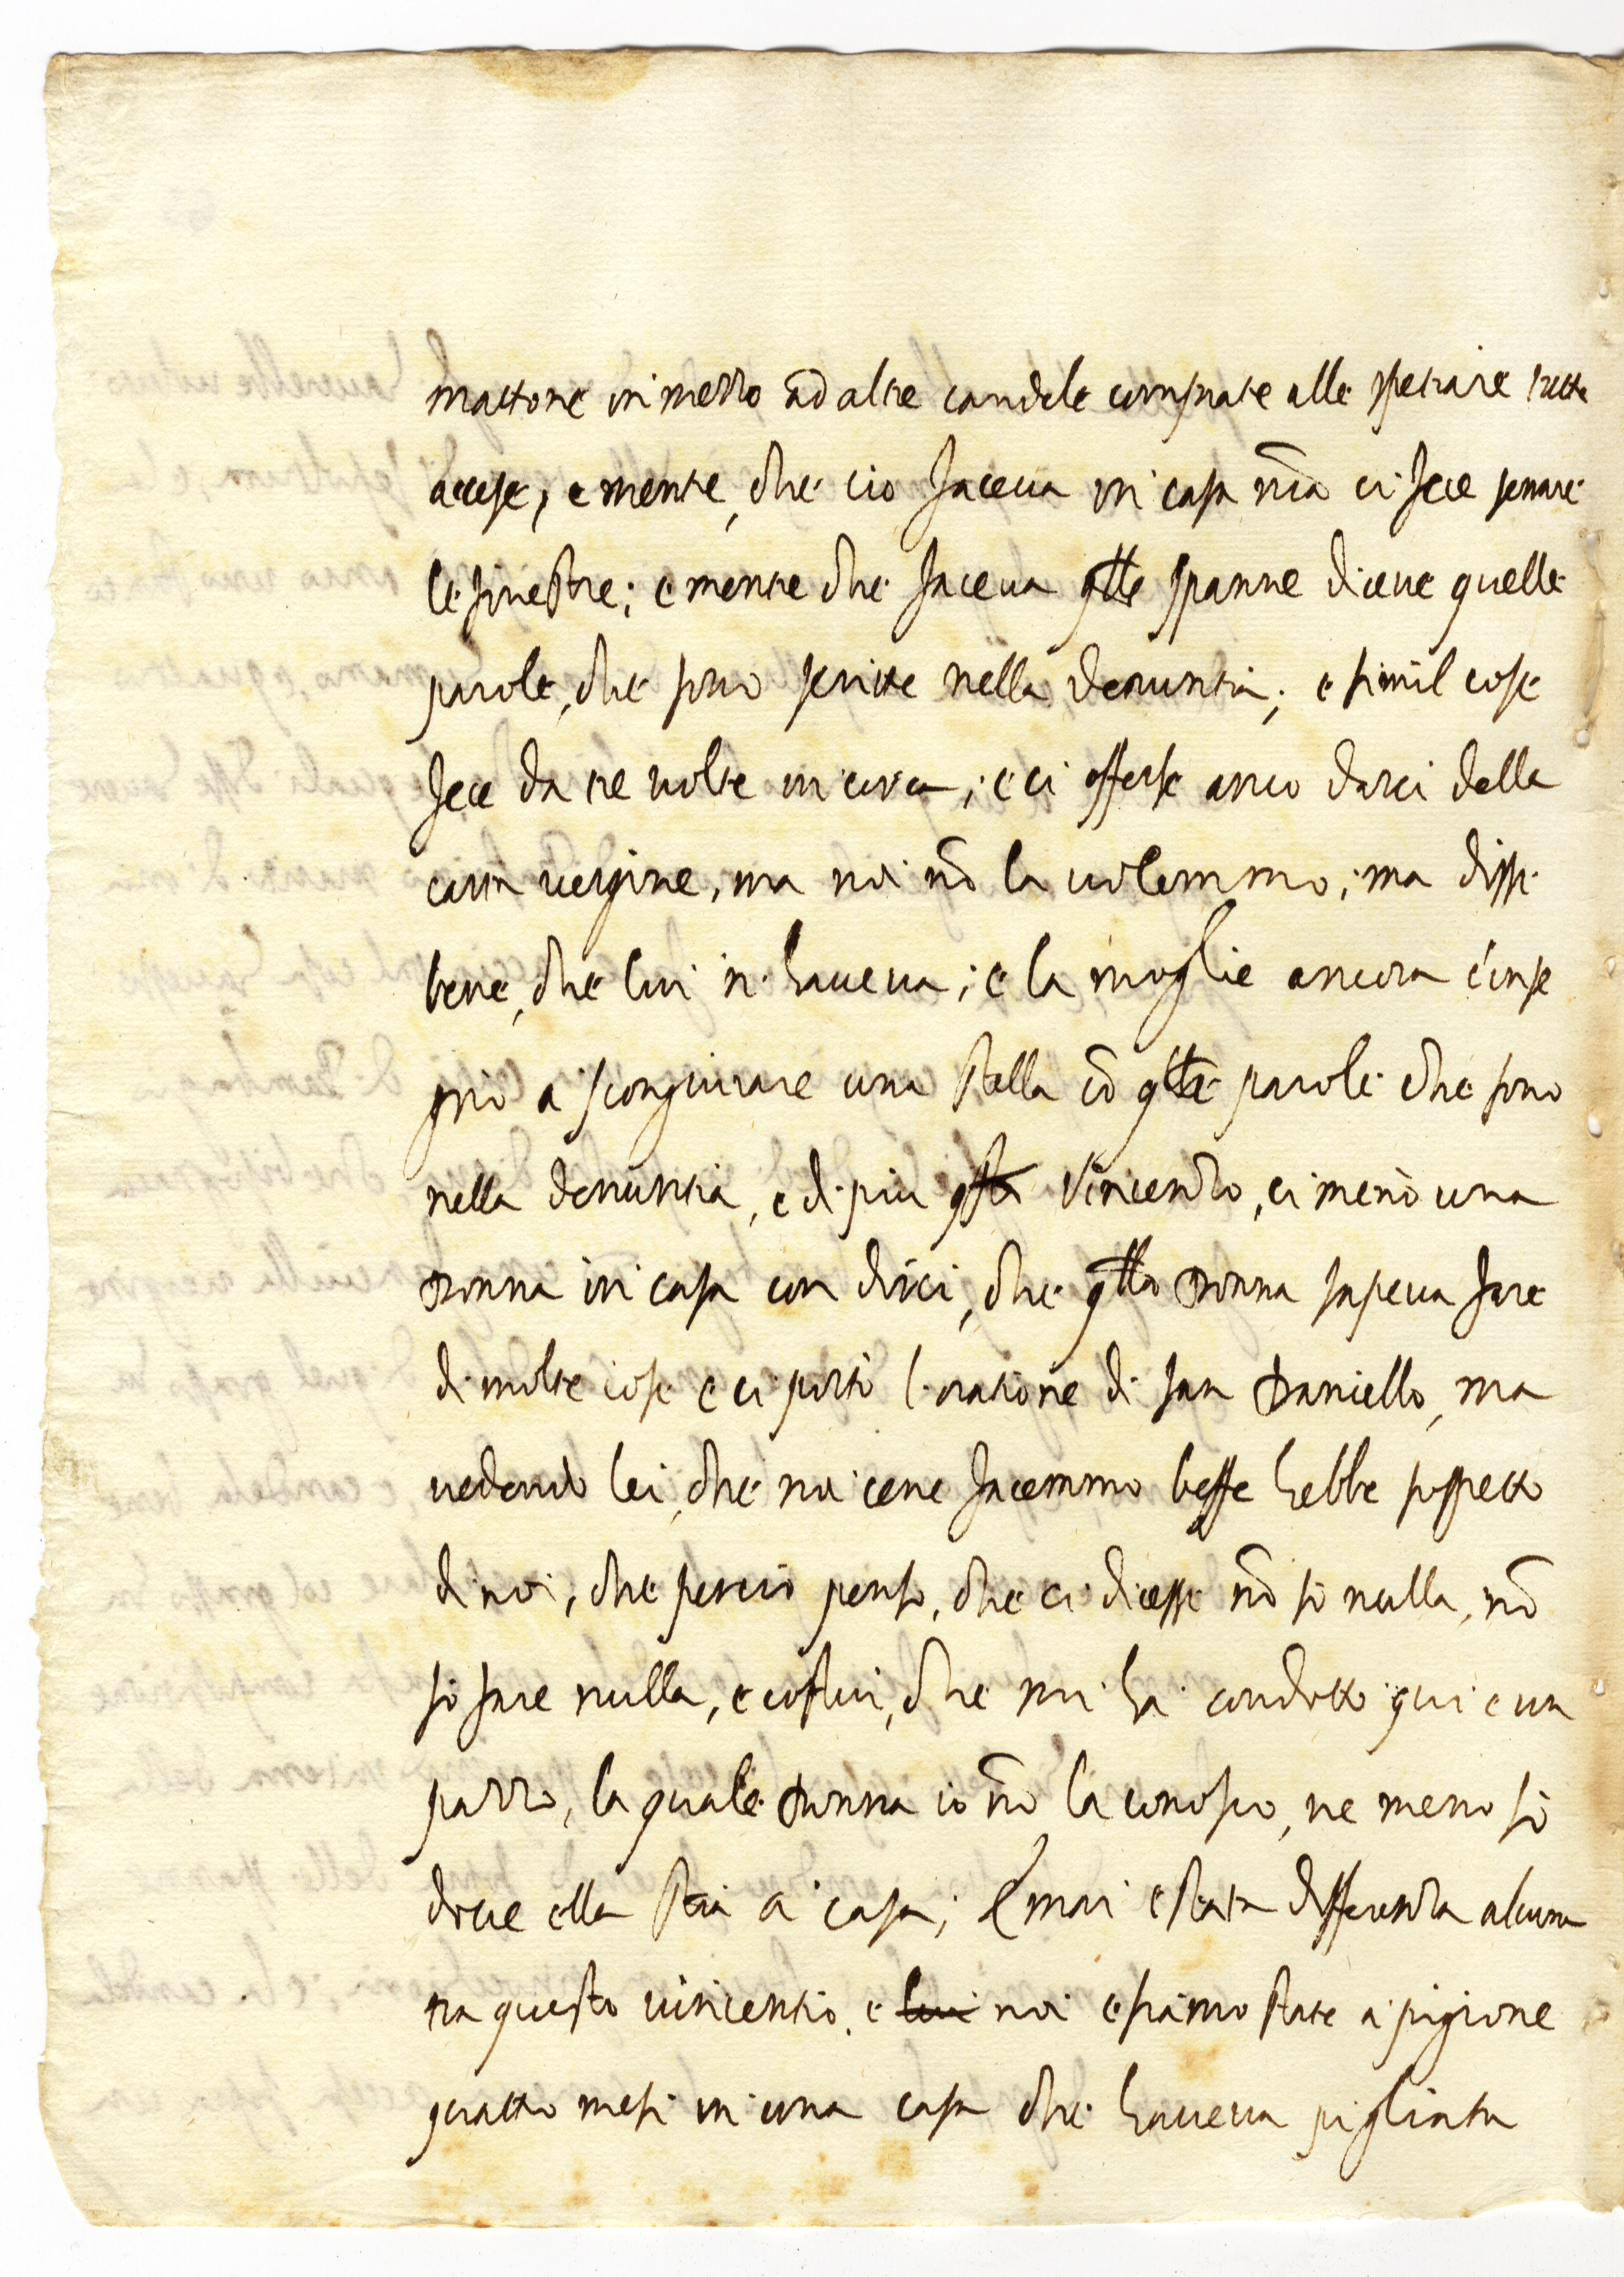 mattone in mezzo ad altre candele comprate alle spetiarie tutte
accese, e mentre, che cio faceva in casa nr̃a ci fece serrare
le finestre; e mentre che faceva qlle spanne diceve quelle
parole, che sono scritte nella denuntia; e simil cose
fece da tre volte in circa; e ci offerse anco darci della
carta vergine, ma noi nõ la volemmo; ma disse
bene, che lui n'haveva; e la moglie ancora c'inse
gnò a scongiurare una stella cõ qlle parole che sono
nella denuntia, e di piu qsto Vincentio, ci menò una
Donna in casa con dirci, che qlla Donna sapeva fare
di molte cose e ci portò l'oratione di san Daniello, ma
vedendo lei, che noi cene facemmo beffe hebbe sospetto
di noi, che perciò penso, che ci dicesse nõ so nulla, nõ
so fare nulla, e costui, che mi hà condotto qui e un
pazzo, la quale Donna io nõ la conosco, ne meno sò
dove ella stia a casa; e mai e stata differentia alcuna
tra questo vincentio. e lui noi e siamo state a pigione
quattro mesi in una casa che haveva pigliata